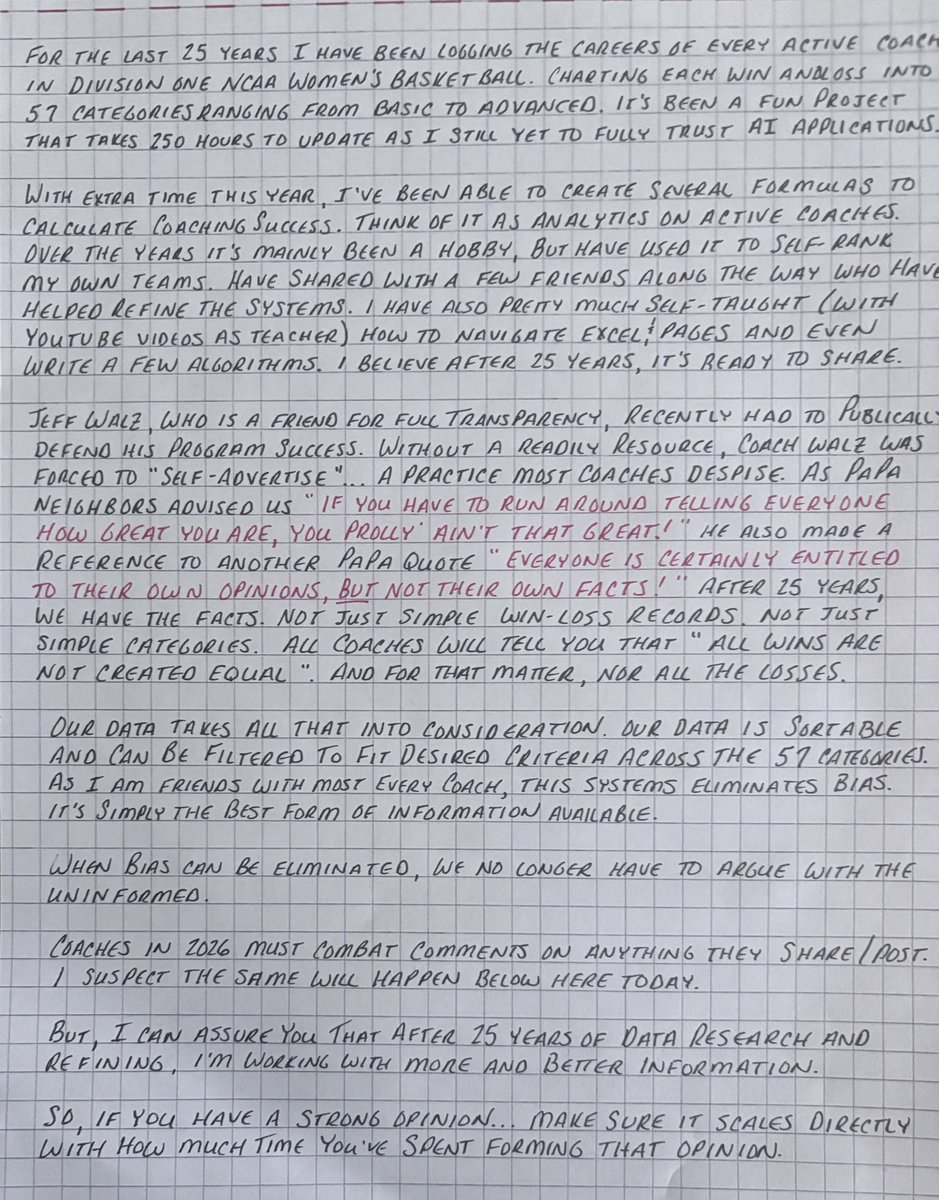 FOR THE LAST 25 YEARS I HAVE BEEN LOGGING THE CAREERS OF EVERY ACTIVE COACH
IN DIVISION ONE NCAA WOMEN'S BASKETBALL. CHARTING EACH WIN AND LOSS INTO
57 CATEGORIES RANGING FROM BASIC TO ADVANCED. IT'S BEEN A FUN PROJECT
THAT TAKES 250 HOURS TO UPDATE AS I STILL YET TO FULLY TRUST AI APPLICATIONS.
WITH EXTRA TIME THIS YEAR, I'VE BEEN ABLE TO CREATE SEVERAL FORMULAS TO
CALCULATE COACHING SUCCESS. THINK OF IT AS ANALYTICS ON ACTIVE COACHES.
OVER THE YEARS IT'S MAINLY BEEN A HOBBY, BUT HAVE USED IT TO SELF-RANK
MY OWN TEAMS. HAVE SHARED WITH A FEW FRIENDS ALONG THE WAY WHO HAVE
HELPED REFINE THE SYSTEMS. I HAVE ALSO PRETTY MUCH SELF-TAUGHT (WITH
YOUTUBE VIDEOS AS TEACHER) HOW TO NAVIGATE EXCEL & PAGES AND EVEN
WRITE A FEW ALGORITHMS. I BELIEVE AFTER 25 YEARS, IT'S READY TO SHARE.
JEFF WALZ, WHO IS A FRIEND FOR FULL TRANSPARENCY, RECENTLY HAD TO PUBLICALLY
DEFEND HIS PROGRAM SUCCESS. WITHOUT A READILY RESOURCE, COACH WALZ WAS
FORCED TO "SELF-ADVERTISE"... A PRACTICE MOST COACHES DESPISE. AS PAPA
NEIGHBORS ADVISED US "IF YOU HAVE TO RUN AROUND TELLING EVERYONE
HOW GREAT YOU ARE, YOU PROLLY' AIN'T THAT GREAT!" HE ALSO MADE A
REFERENCE TO ANOTHER PAPA QUOTE "EVERYONE IS CERTAINLY ENTITLED
TO THEIR OWN OPINIONS, BUT NOT THEIR OWN FACTS!" AFTER 25 YEARS,
WE HAVE THE FACTS. NOT JUST SIMPLE WIN-LOSS RECORDS. NOT JUST
SIMPLE CATEGORIES. ALL COACHES WILL TELL YOU THAT "ALL WINS ARE
NOT CREATED EQUAL". AND FOR THAT MATTER, NOR ALL THE LOSSES.
OUR DATA TAKES ALL THAT INTO CONSIDERATION. OUR DATA IS SORTABLE
AND CAN BE FILTERED TO FIT DESIRED CRITERIA ACROSS THE 57 CATEGORIES.
AS I AM FRIENDS WITH MOST EVERY COACH, THIS SYSTEMS ELIMINATES BIAS.
IT'S SIMPLY THE BEST FORM OF INFORMATION AVAILABLE.
WHEN BIAS CAN BE ELIMINATED, WE NO LONGER HAVE TO ARGUE WITH THE
UNINFORMED.
COACHES IN 2026 MUST COMBAT COMMENTS ON ANYTHING THEY SHARE/POST.
I SUSPECT THE SAME WILL HAPPEN BELOW HERE TODAY.
BUT, I CAN ASSURE YOU THAT AFTER 25 YEARS OF DATA RESEARCH AND
REFINING, I'M WORKING WITH MORE AND BETTER INFORMATION.
SO, IF YOU HAVE A STRONG OPINION... MAKE SURE IT SCALES DIRECTLY
WITH HOW MUCH TIME YOU'VE SPENT FORMING THAT OPINION.